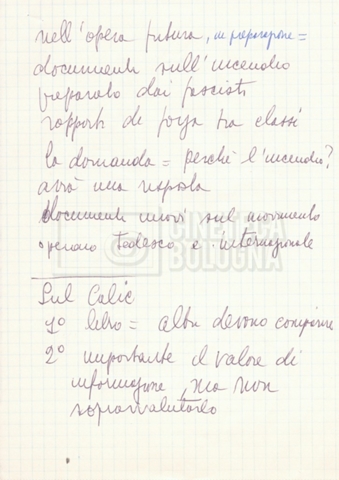 nell'opera futura, in preparazione =
documenti sull'incendio
preparato dai fascisti
rapporti di forza tra classi
la domanda = perchè l'incendio?
avrà una risposta
documenti nuovi sul movimento
operaio tedesco e internazionale
CINETECA
BOLOGNA
Sul Calic
1° libro = altri devono comparire
2° importante il valore di
informazione, ma non
sopravvalutarlo